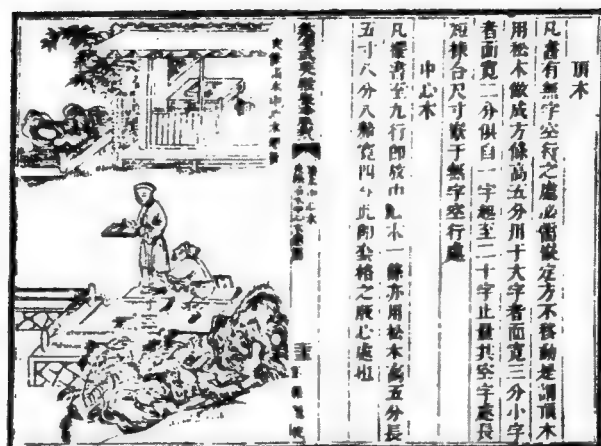 頂木
凡書有無字空行之處必需嵌定方不移動是謂頂木
用松木做成方條高五分用于大字者面寬三分小字
者面寬二分俱自一字起至二十字止量其空字處長
短揀合尺寸嵌于無字空行處
中心木
凡擺書至九行即放中心木一條亦用松木高五分長
五寸八分八釐寬四分此即套格之版心處也
武英殿聚珍版程式